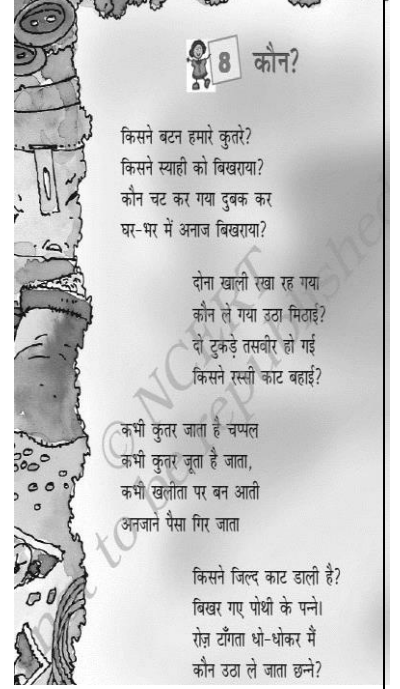 8 कौन?
किसने बटन हमारे कुतरे?
किसने स्याही को बिखराया?
कौन चट कर गया दुबक कर
घर-भर में अनाज बिखराया?
दोना खाली रखा रह गया
कौन ले गया उठा मिठाई?
दो टुकड़े तसवीर हो गई
किसने रस्सी काट बहाई?
कभी कुतर जाता है चप्पल
कभी कुतर जूता है जाता,
कभी खलीता पर बन आती
अनजाने पैसा गिर जाता
किसने जिल्द काट डाली है?
बिखर गए पोथी के पन्ने।
रोज़ टाँगता धो-धोकर मैं
कौन उठा ले जाता छन्ने?
© NCERT
not to be republished